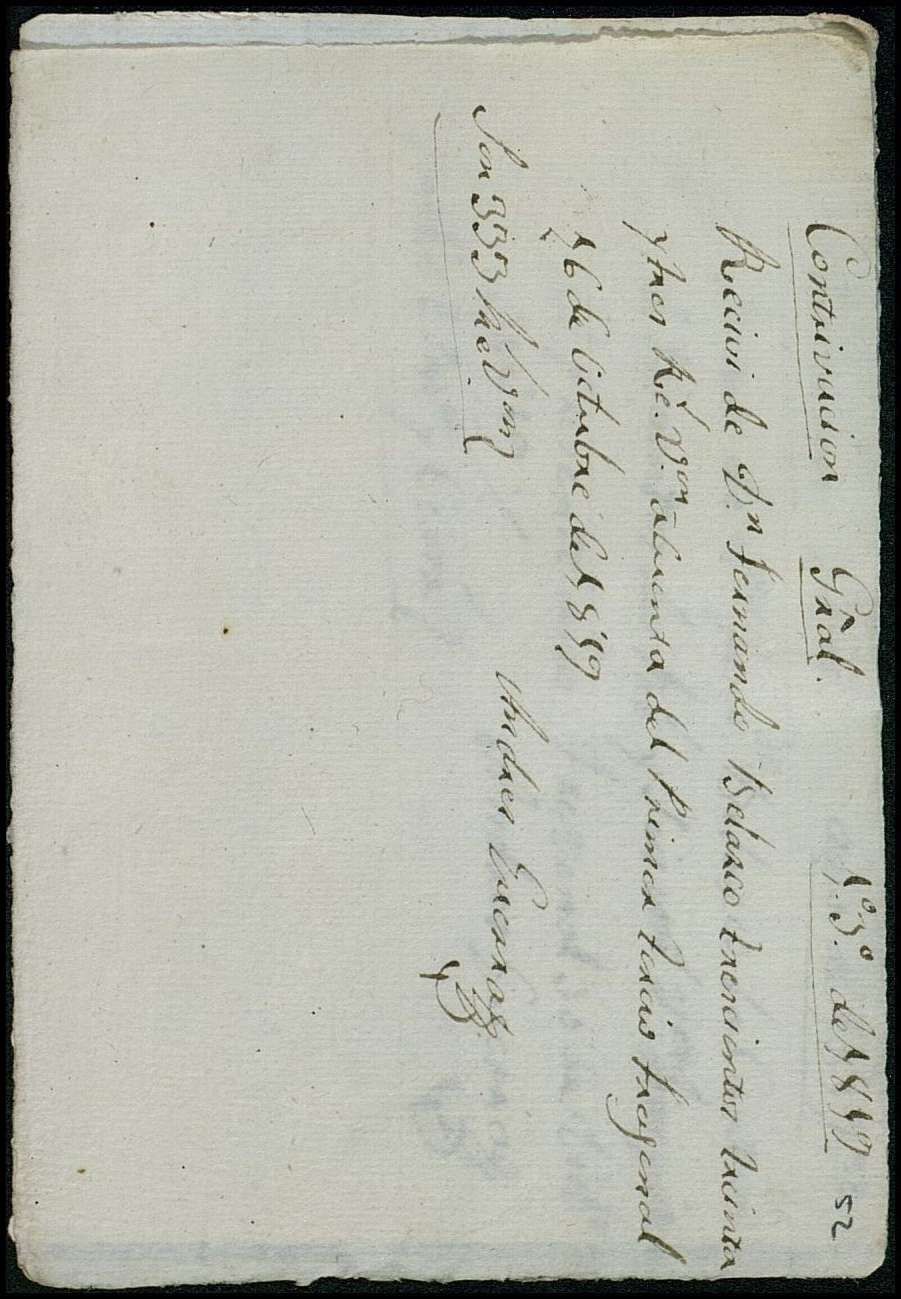 Contrivucion Gral. 1º 3º de 1819 52
Recivi de Dn Fernando Belarco trecientos treinta
y tres Rs. Von â cuenta del Primer tercio Fregenal
16 de Octubre de 1819
Andres Guerra
Son 333 Rs Von